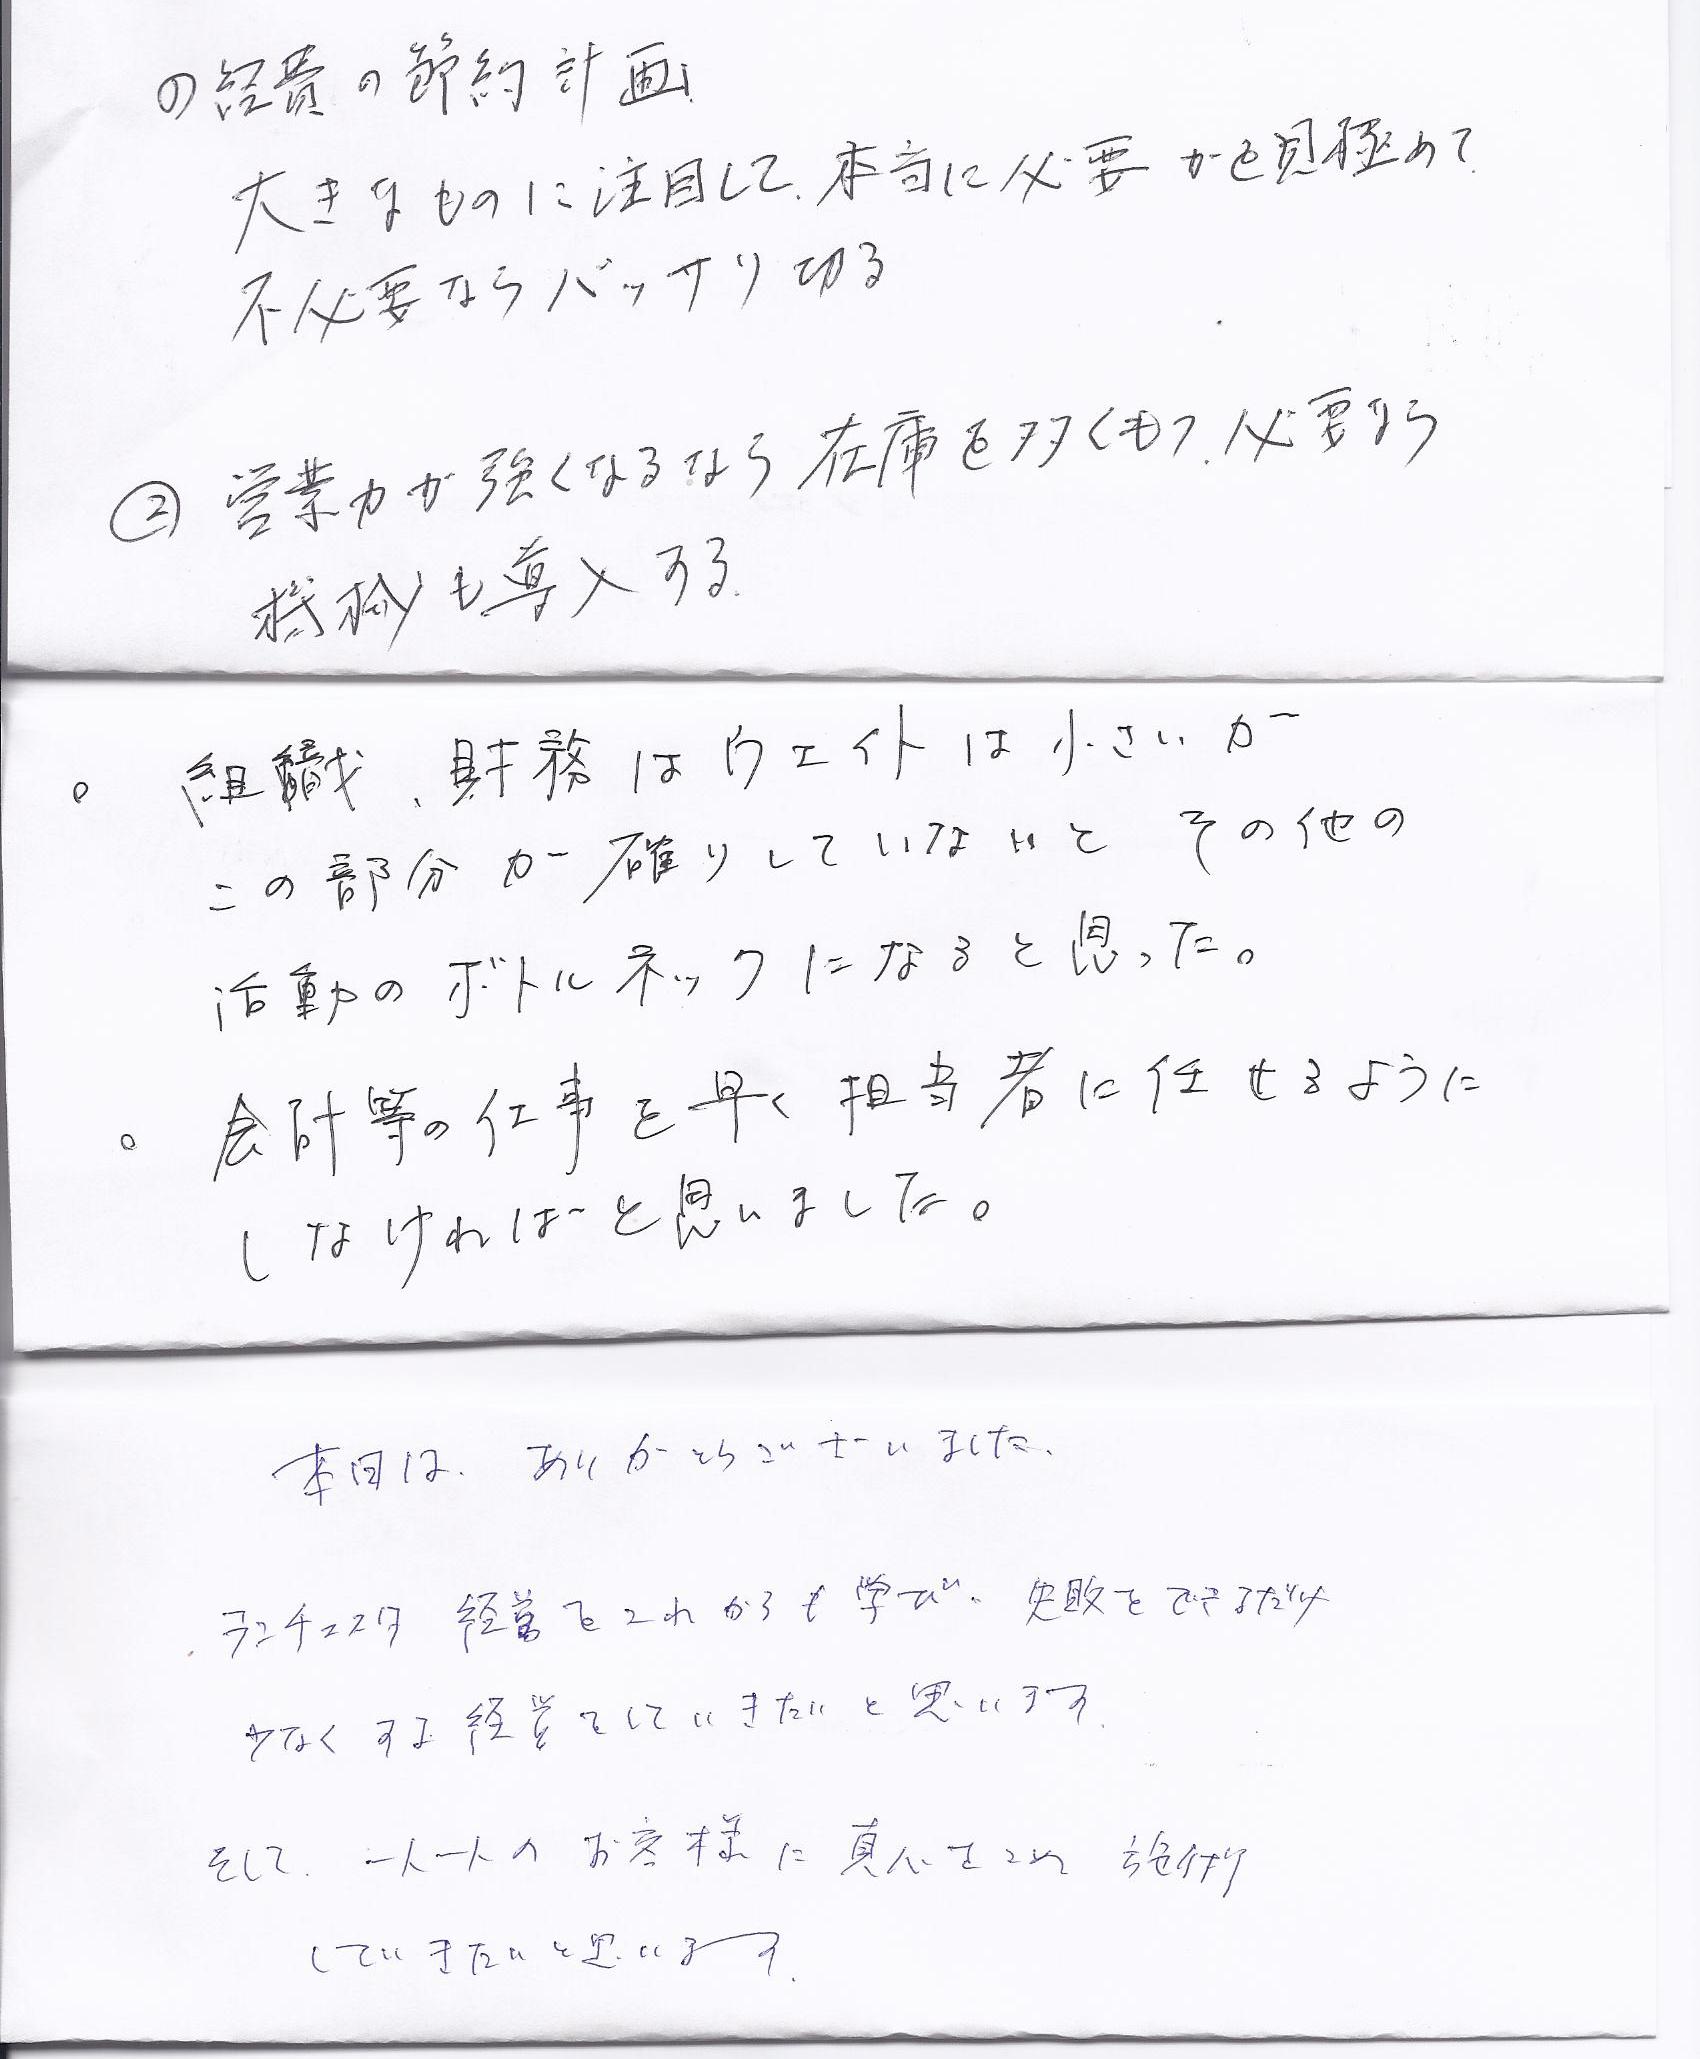 ①経費の節約計画
大きなものに注目して、本当に必要かを見極めて
不必要ならバッサリ切る
② 営業力が強くなるなら在庫を多くもつ、必要なら
機械も導入する。
。組織、財務はウェイトは小さいが
この部分が確りしていないと その他の
活動のボトルネックになると思った。
。会計等の仕事を早く担当者に任せるように
しなければと思いました。
本日は、ありがとうございました。
ランチェスタ経営をこれからも学び、失敗をできるだけ
少なくする経営をしていきたいと思います。
そして、一人一人のお客様に真心をこめ
していきたいと思います。